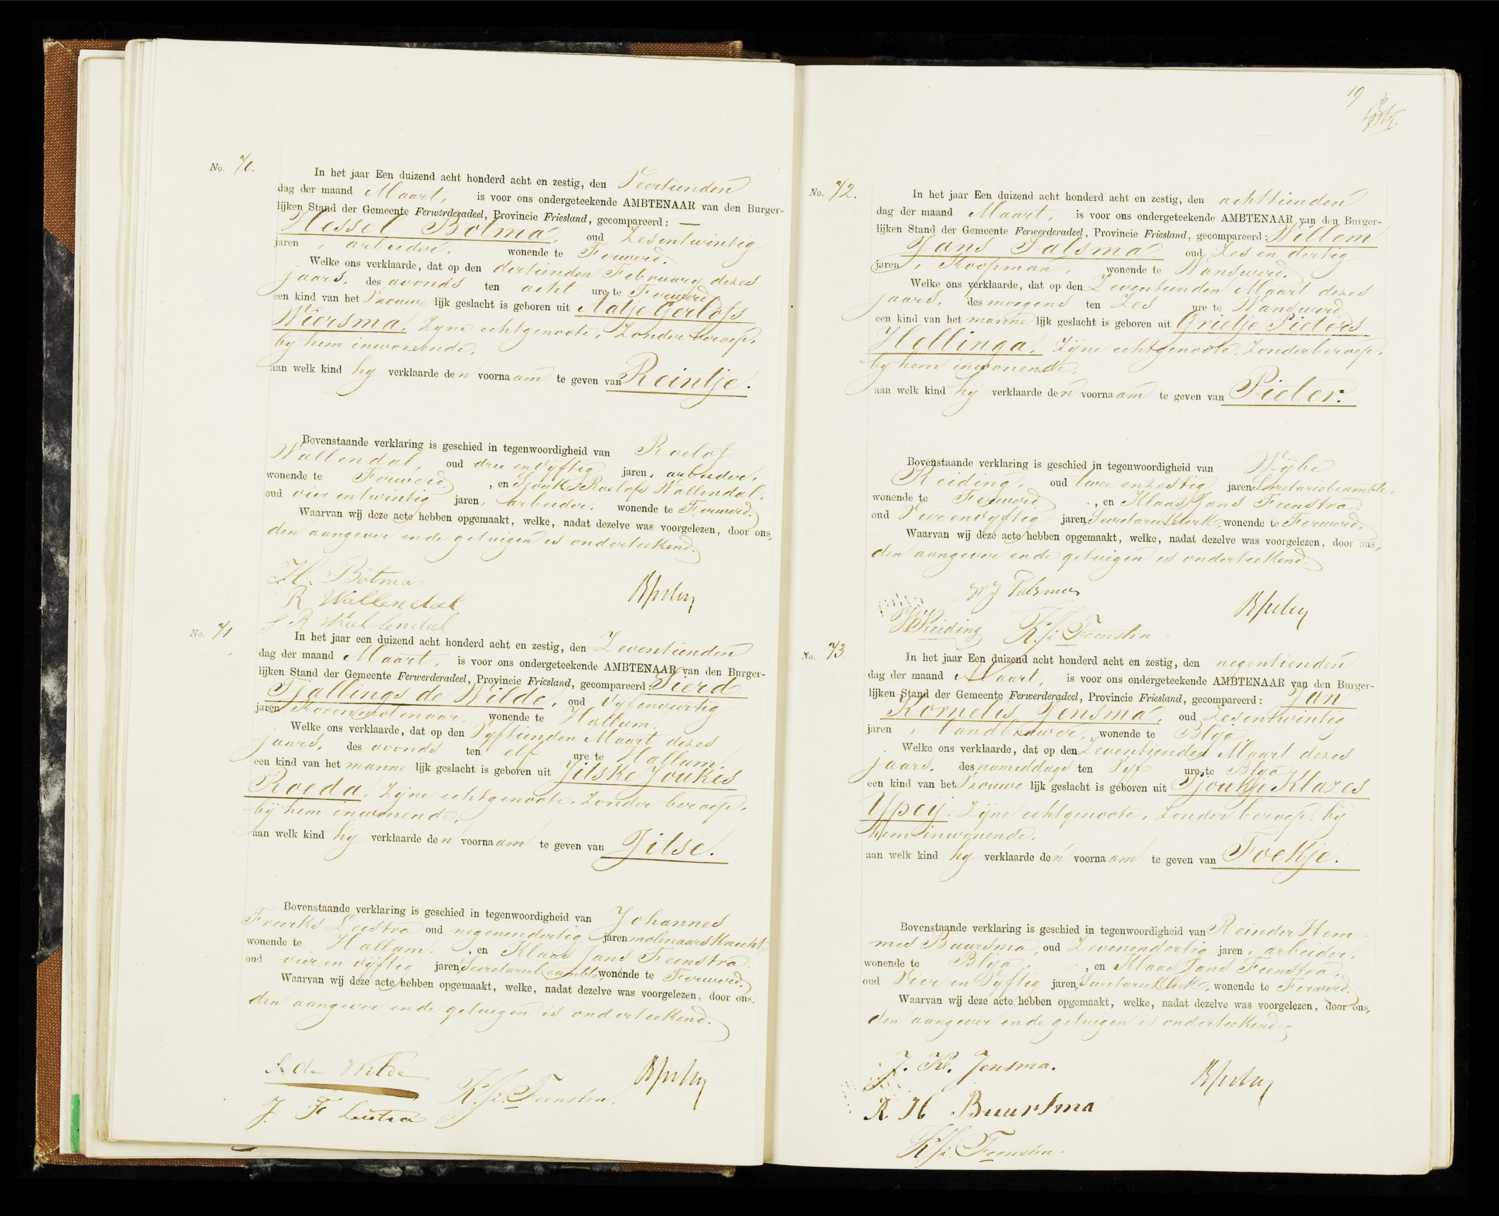 No. 70.
In het jaar Een duizend acht honderd acht en zestig, den Veertienden
dag der maand Maart, is voor ons ondergeteekende AMBTENAAR van den Burger-
lijken Stand der Gemeente Ferwerderadeel, Provincie Friesland, gecompareerd: —
Hessel Botma, oud Zesentwintig
jaren, arbeider, wonende te Ferwerd.
Welke ons verklaarde, dat op den dertienden February dezes
jaars, des avonds ten acht ure te Ferwerd
een kind van het Vrouwe lijk geslacht is geboren uit Aatje Gerlofs
Wiersma, Zijne echtgenoote, Zonder beroep,
by hem inwonende,
aan welk kind hy verklaarde den voornaam te geven van Reintje.
Bovenstaande verklaring is geschied in tegenwoordigheid van Roelof
Wallendal, oud drie en vyftig jaren, arbeider,
wonende te Ferwerd, en Roelofs Wallendal,
oud vier en twintig jaren, arbeider, wonende te Ferwerd.
Waarvan wij deze acte hebben opgemaakt, welke, nadat dezelve was voorgelezen, door ons,
den aangever en de getuigen is onderteekend.
H. Botma
R Wallendal
R Wallendal
No. 71
In het jaar een duizend acht honderd acht en zestig, den Zeventienden
dag der maand Maart, is voor ons ondergeteekende AMBTENAAR van den Burger-
lijken Stand der Gemeente Ferwerderadeel, Provincie Friesland, gecompareerd: Sierd
Wallings de Wilde, oud Vyfenveertig
jaren Korenmolenaar, wonende te Hallum.
Welke ons verklaarde, dat op den Vyftienden Maart dezes
jaars, des avonds ten elf ure te Hallum,
een kind van het manne lijk geslacht is geboren uit Jitske Joukes
Roeda, Zijne echtgenoote, Zonder beroep,
by hem inwonende,
aan welk kind hy verklaarde den voornaam te geven van Jitse.
Bovenstaande verklaring is geschied in tegenwoordigheid van Johannes
Freerks Leistra oud negenendertig jaren molenaars Knecht,
wonende te Hallum, en Klaas Jans Feenstra
oud vier en vijftig jaren, wonende te Ferwerd.
Waarvan wij deze acte hebben opgemaakt, welke, nadat dezelve was voorgelezen, door ons,
den aangever en de getuigen is onderteekend.
S. de Wilde
J F Leistra
K. J. Feenstra
19
No. 72.
In het jaar Een duizend acht honderd acht en zestig, den achttienden
dag der maand Maart, is voor ons ondergeteekende AMBTENAAR van den Burger-
lijken Stand der Gemeente Ferwerderadeel, Provincie Friesland, gecompareerd: Willem
Jans Talsma oud Zes en dertig
jaren, Koopman, wonende te Wanswerd.
Welke ons verklaarde, dat op den Zeventienden Maart dezes
jaars, des morgens ten Zes ure te Wanswerd
een kind van het manne lijk geslacht is geboren uit Grietje Pieters
Hellinga, Zijne echtgenoote, Zonder beroep,
by hem inwonende,
aan welk kind hy verklaarde den voornaam te geven van Pieter.
Bovenstaande verklaring is geschied in tegenwoordigheid van Wijbe
Reiding, oud twee en zestig jaren,
wonende te Ferwerd, en Klaas Jans Feenstra
oud Vier en Vyftig jaren, Secretarie Klerk, wonende te Ferwerd.
Waarvan wij deze acte hebben opgemaakt, welke, nadat dezelve was voorgelezen, door ons,
den aangever en de getuigen is onderteekend.
W J Talsma
W Reiding K. J. Feenstra
No. 73
In het jaar Een duizend acht honderd acht en zestig, den negentienden
dag der maand Maart, is voor ons ondergeteekende AMBTENAAR van den Burger-
lijken Stand der Gemeente Ferwerderadeel, Provincie Friesland, gecompareerd: Jan
Kornelis Jensma, oud Zesentwintig
jaren, landbouwer, wonende te Blija.
Welke ons verklaarde, dat op den Zeventienden Maart dezes
jaars, des namiddags ten Vyf ure te Blija
een kind van het Vrouwe lijk geslacht is geboren uit Tjoukje Klazes
Ypey, Zijne echtgenoote, Zonder beroep, by
hem inwonende,
aan welk kind hy verklaarde den voornaam te geven van Foekje.
Bovenstaande verklaring is geschied in tegenwoordigheid van Reinder Hem-
mes Buursma, oud Zevenendertig jaren, arbeider,
wonende te Blija, en Klaas Jans Feenstra,
oud Vier en Vyftig jaren, Secretarie Klerk, wonende te Ferwerd.
Waarvan wij deze acte hebben opgemaakt, welke, nadat dezelve was voorgelezen, door ons,
den aangever en de getuigen is onderteekend.
J. K. Jensma.
R H Buursma
K. J. Feenstra